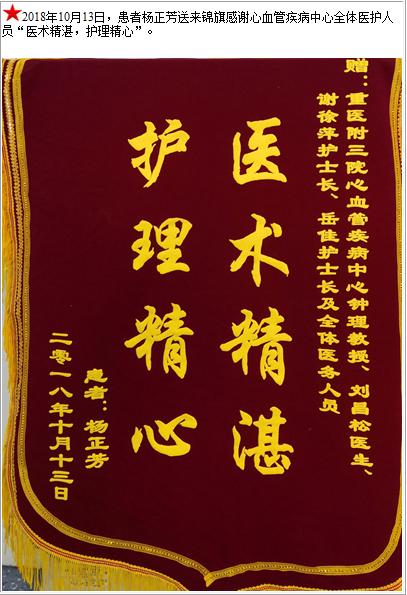 2018年10月13日，患者杨正芳送来锦旗感谢心血管疾病中心全体医护人
员“医术精湛，护理精心”。
赠：重医附三院心血管疾病中心钟理教授、刘昌松医生、
谢徐萍护士长、岳佳护士长及全体医务人员
医术精湛
护理精心
患者：杨正芳
二零一八年十月十三日